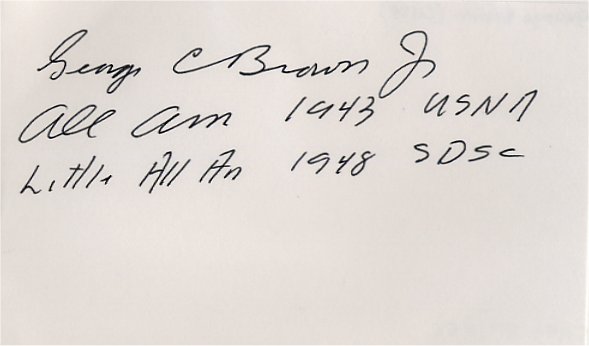 George C Brown Jr
All Am 1943 USNA
Little All Am 1948 SDSC